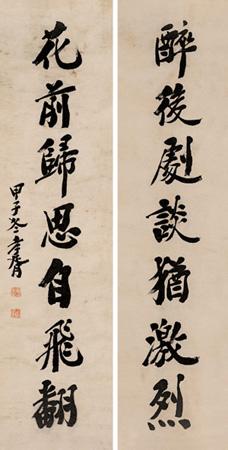 醉後劇談猶激烈
花前歸思自飛翻
甲子冬孝胥